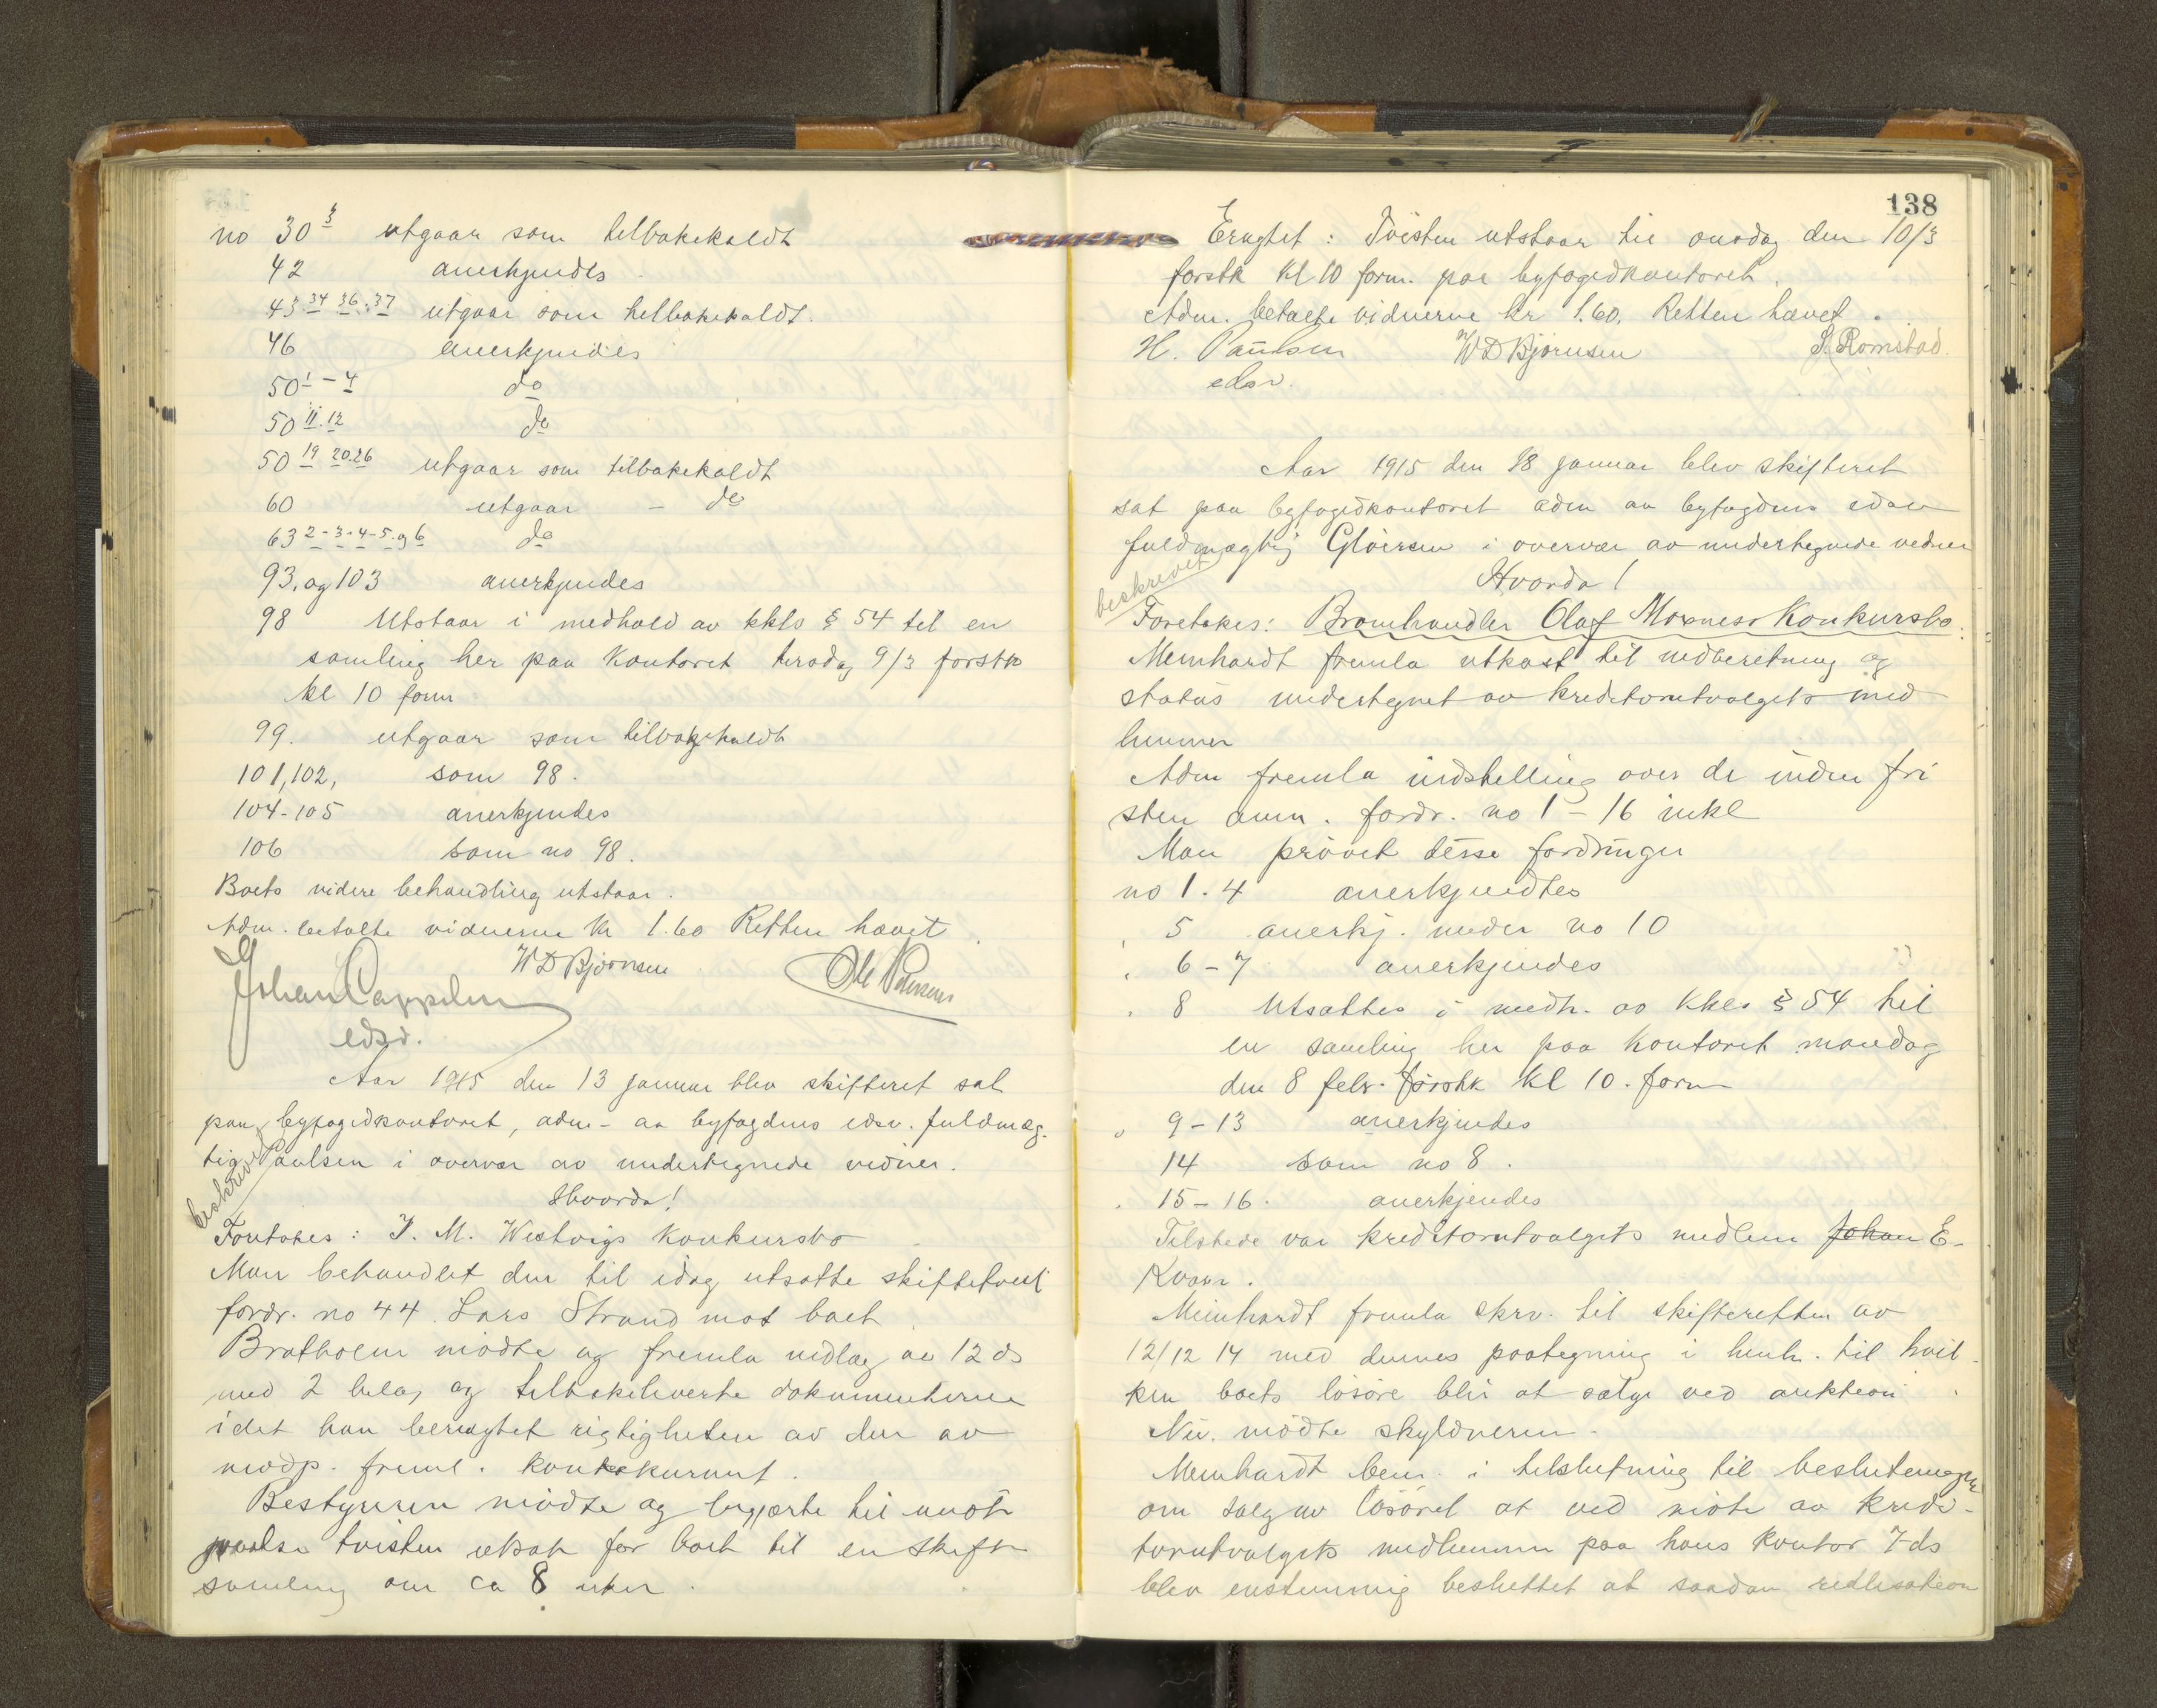 no 30 3 utgaar som tilbakekaldt
42 anerkjendes
43 34 36.37 utgaar som tilbakekaldt.
46 anerkjendes
50 1-4 do
50 11.12 do
50 19 20.26 utgaar som tilbakekaldt
60 utgaar - do
63 2-3-4-5.og 6 do
93. og 103 anerkjendes
98 Utstaar i medhold av kkls § 54 til en
samling her paa kontoret tirsdag 9/3 førstk
kl 10 form
99. utgaar som tilbakekaldt
101,102, som 98.
104-105 anerkjendes
106 som no 98.
Boets videre behandling utstaar.
Adm. betalte vidnerne kr 1.60 Retten hævet.
Johan Cappelen W D Bjørnsen
edsv.
Aar 1915 den 13 januar blev skifteret sat
paa byfogedkontoret, adm. av byfogdens edsv. fuldmæg-
tig Paulsen i overvær av undertegnede vidner.
beskrevet
Hvorda!
Foretokes: J. M. Westvigs konkursbo
Man behandlet den til idag utsatte skiftetvist
fordr. no 44. Lars Strand mot boet.
Bratholm mødte og fremla indlæg av 12 ds
med 2 bilag og tilbakeleverte dokumenterne
idet han benegtet rigtigheten av den av
modp. freml. kontokurant.
Bestyreren mødte og begjærte til imøte
gaaelse tvisten utsat for boet til en skifte
samling om ca 8 uker.
138
Eragtet: Tvisten utstaar til onsdag den 10/3
førstk kl 10 form. paa byfogedkontoret.
Adm. betalte vidnerne kr 1.60. Retten hævet.
H. Paulsen W D Bjørnsen S. Romstad.
edsv.
Aar 1915 den 18 januar blev skifteret
sat paa byfogedkontoret adm av byfogdens edsv
fuldmægtig Gløersen i overvær av undertegnede vidner
beskrevet
Hvorda!
Foretokes: Bromhandler Olaf Moxness Konkursbo.
Meinhardt fremla utkast til indberetning og
status undertegnet av kreditorutvalgets med
lemmer
Adm fremla indstilling over de inden fri
sten anm. fordr. no 1 - 16 inkl
Man prøvet disse fordringer
no 1. 4 anerkjendtes
5 anerkj. under no 10
6 - 7 anerkjendes
8 Utsattes i medh. av Kkls § 54 til
en samling her paa kontoret mandag
den 8 febr. førstk kl 10. form
9 - 13 anerkjendes
14 som no 8.
15 - 16. anerkjendes
Tilstede var kreditorutvalgets medlem Johan E.
Kvaxn.
Meinhardt fremla skrv. til skifteretten av
12/12 14 med dennes paategning i henh. til hvil-
ken boets løsøre blir at sælge ved auktion.
Nu. mødte skyldneren.
Meinhardt bem. i tilslutning til beslutningen
om salg av løsøret at ved møte av kredi-
torutvalgets medlemmer paa hans kontor 7-ds
blev enstemmig besluttet at saadan realisation